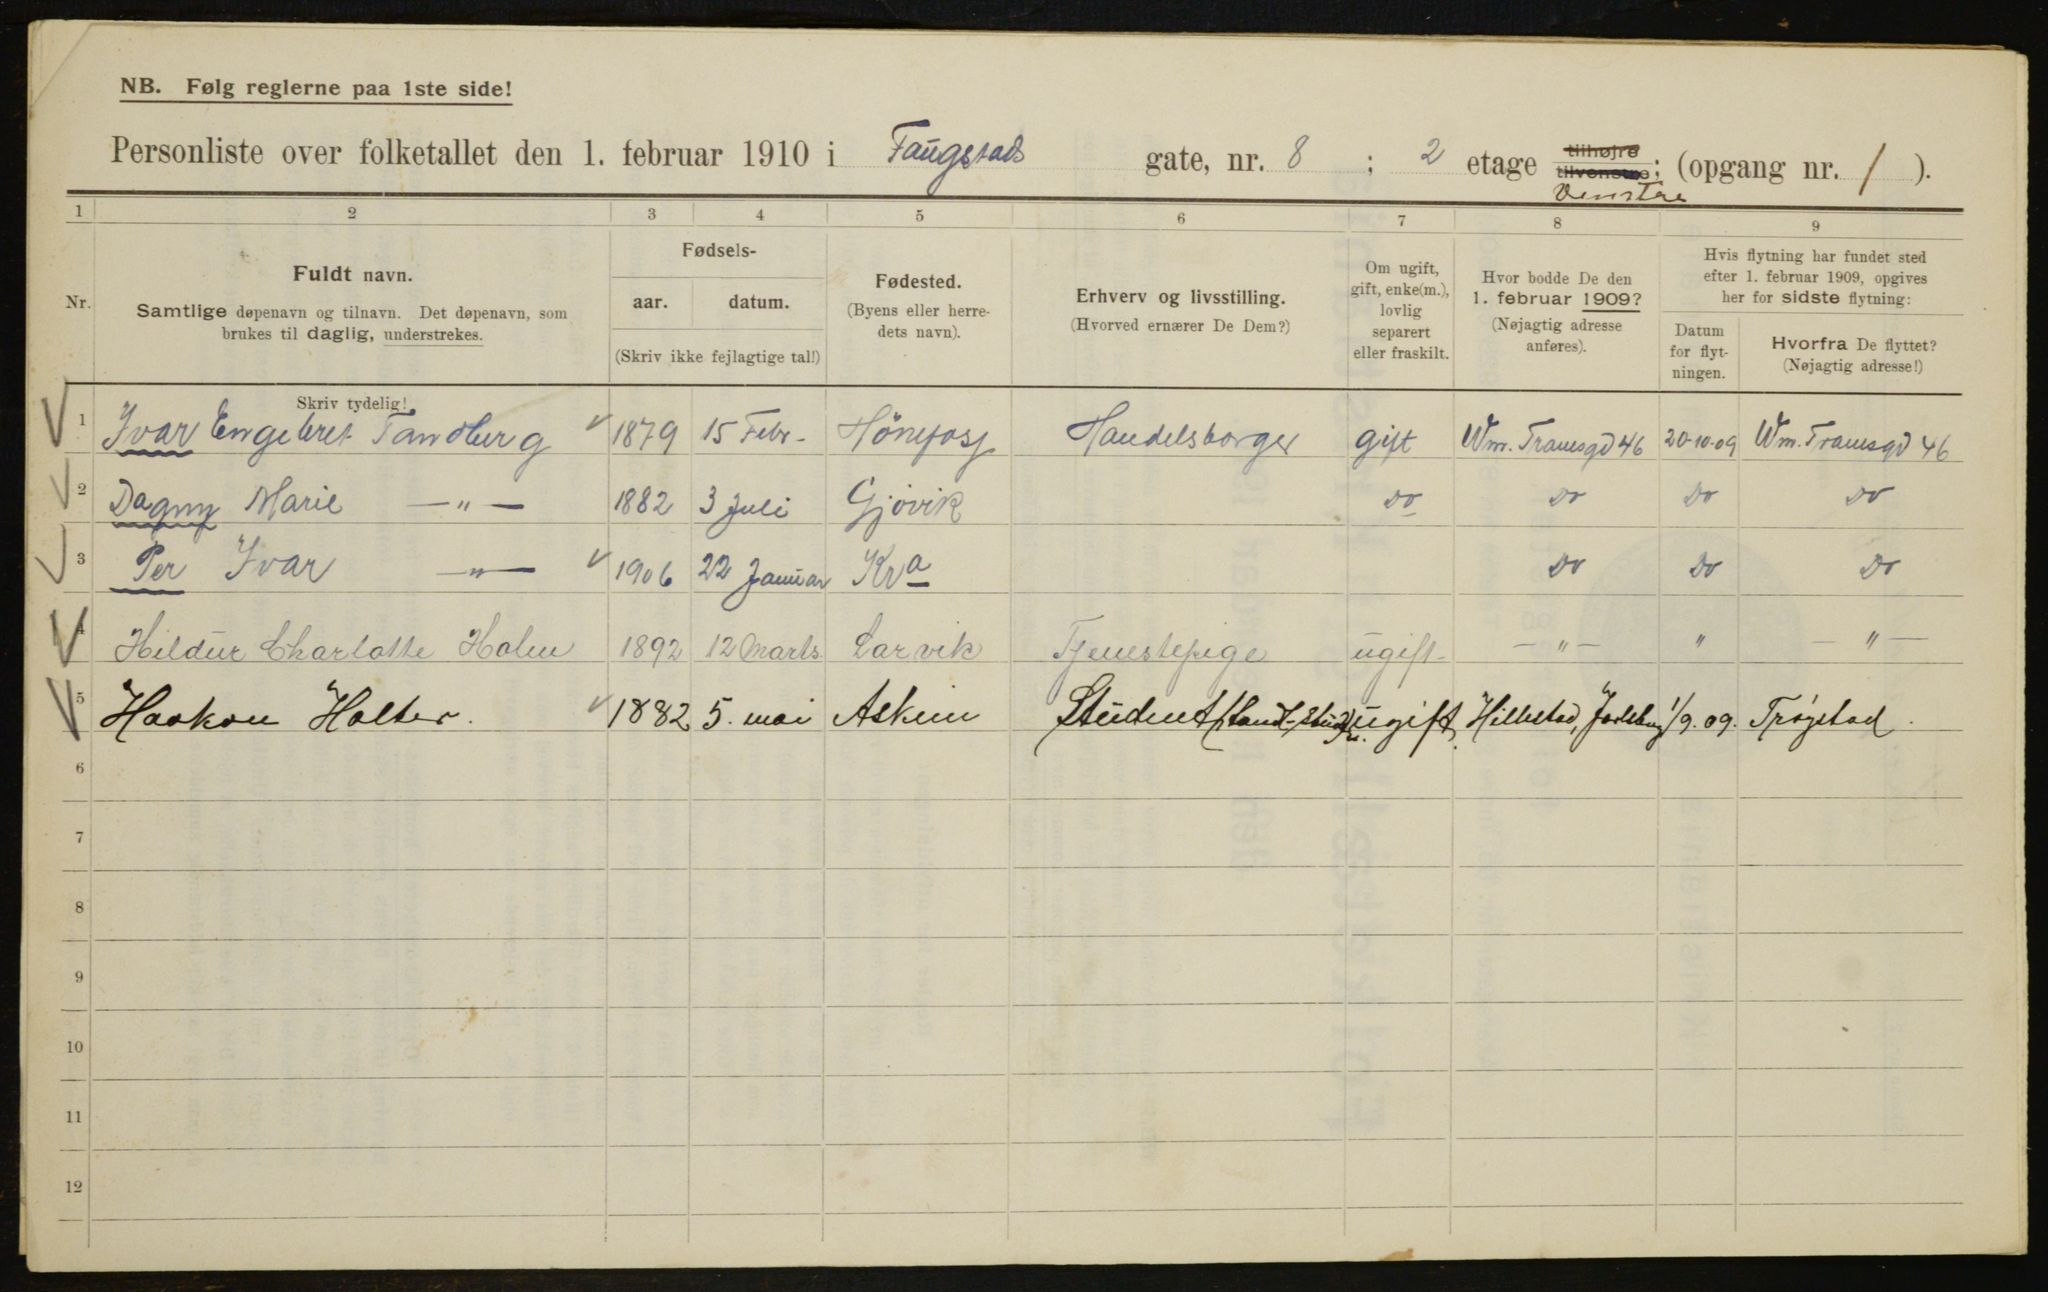 NB. Følg reglerne paa 1ste side!
Personliste over folketallet den 1. februar 1910 i Faugstads gate, nr. 8 ; 2 etage tilhøjre tilvenstre; Venstre (opgang nr. 1 ).
1 2 3 4 5 6 7 8 9
Nr.
Fuldt navn.
Samtlige døpenavn og tilnavn. Det døpenavn, som
brukes til daglig, understrekes.
Skriv tydelig!
Fødsels-
aar. datum.
(Skriv ikke fejlagtige tal!)
Fødested.
(Byens eller herre-
dets navn).
Erhverv og livsstilling.
(Hvorved ernærer De Dem?)
Om ugift,
gift, enke(m.),
lovlig
separert
eller fraskilt.
Hvor bodde De den
1. februar 1909?
(Nøjagtig adresse
anføres).
Hvis flytning har fundet sted
efter 1. februar 1909, opgives
her for sidste flytning:
Datum
for flyt-
ningen.
Hvorfra De flyttet?
(Nøjagtig adresse!)
1 Ivar Engebret Tandberg 1879 15 Febr- Hönefoss Handelsborger gift Wm. Tranesgd 46 20-10-09 Wm. Tranesgd 46
2 Dagny Marie —"— 1882 3 Juli Gjövik Do Do Do Do
3 Per Ivar —"— 1906 22 Januar Kra Do Do Do
4 Hildur Charlotte Holm 1892 12 Marts Larvik Tjenestepige ugift —"— " —"—
5 Haakon Holter. 1882 5. mai Askim Student ugift. Hillestad, 1/9. 09. Trøgstad.
6
7
8
9
10
11
12